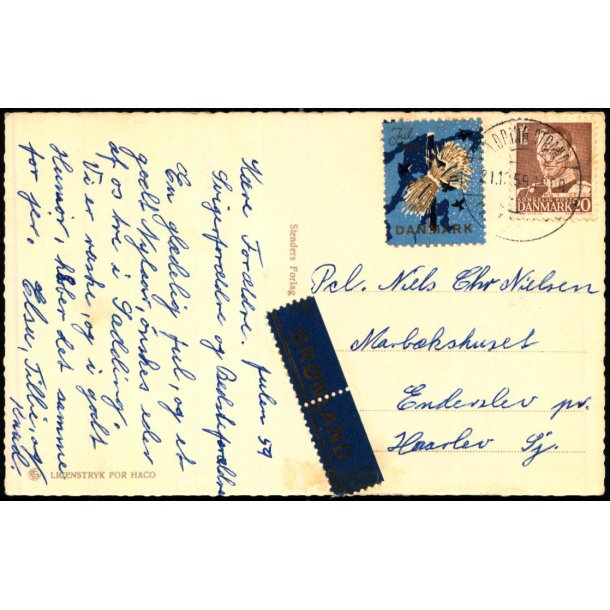 Kære Forældre. Julen 59
Svigerforældre og Bedsteforældre
En glædelig jul, og et
godt Nytaar, ønskes eder
af os tre i Gadding.
Vi er raske, og i godt
Humør, haber det samme
for jer. Else, Tilli og
Knud.
Jul
DANMARK
KONGELIG POST
DANMARK 20
21.12.59
Stenders Forlag
GRØNLAND
Pcl. Niels Chr Nielsen
Marbækshuset
Enderslev pr.
Haarlev Sj.
LICENSTRYK FOR HACO